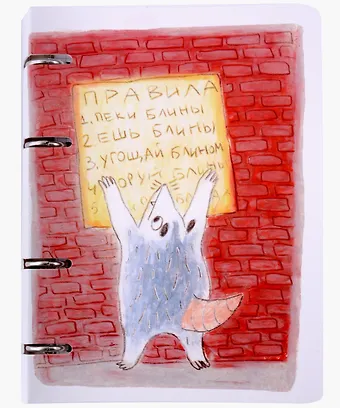 ПРАВИЛА
1. ПЕКИ БЛИНЫ
2. ЕШЬ БЛИНЫ
3. УГОЩАЙ БЛИНОМ
БЛИНЫ